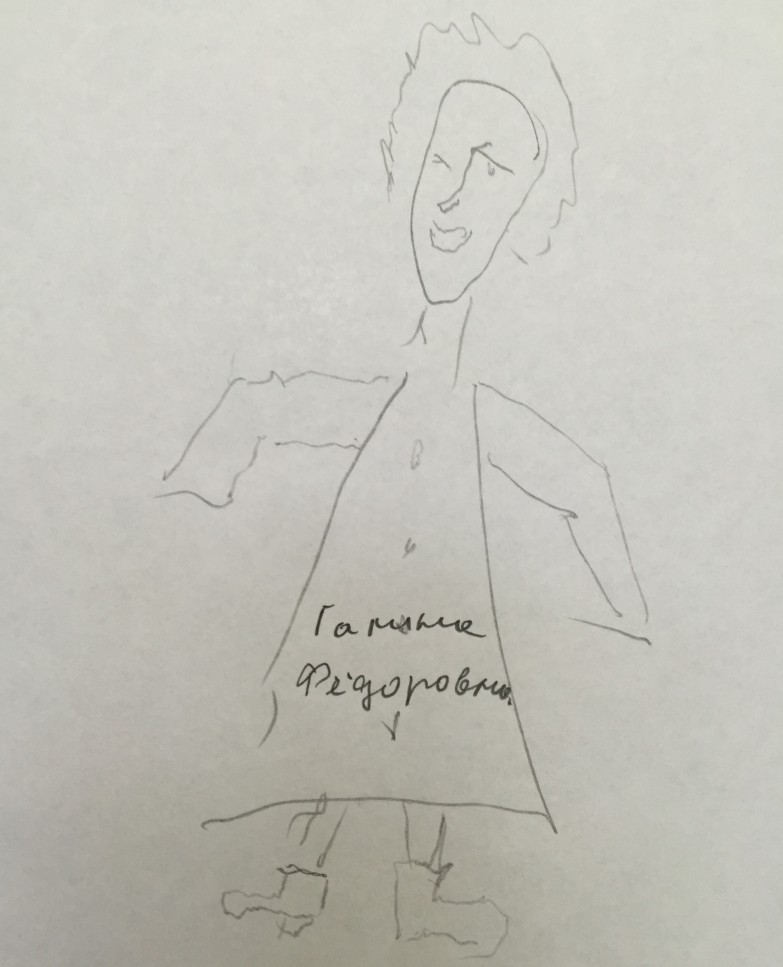 Галина
Фёдоровна